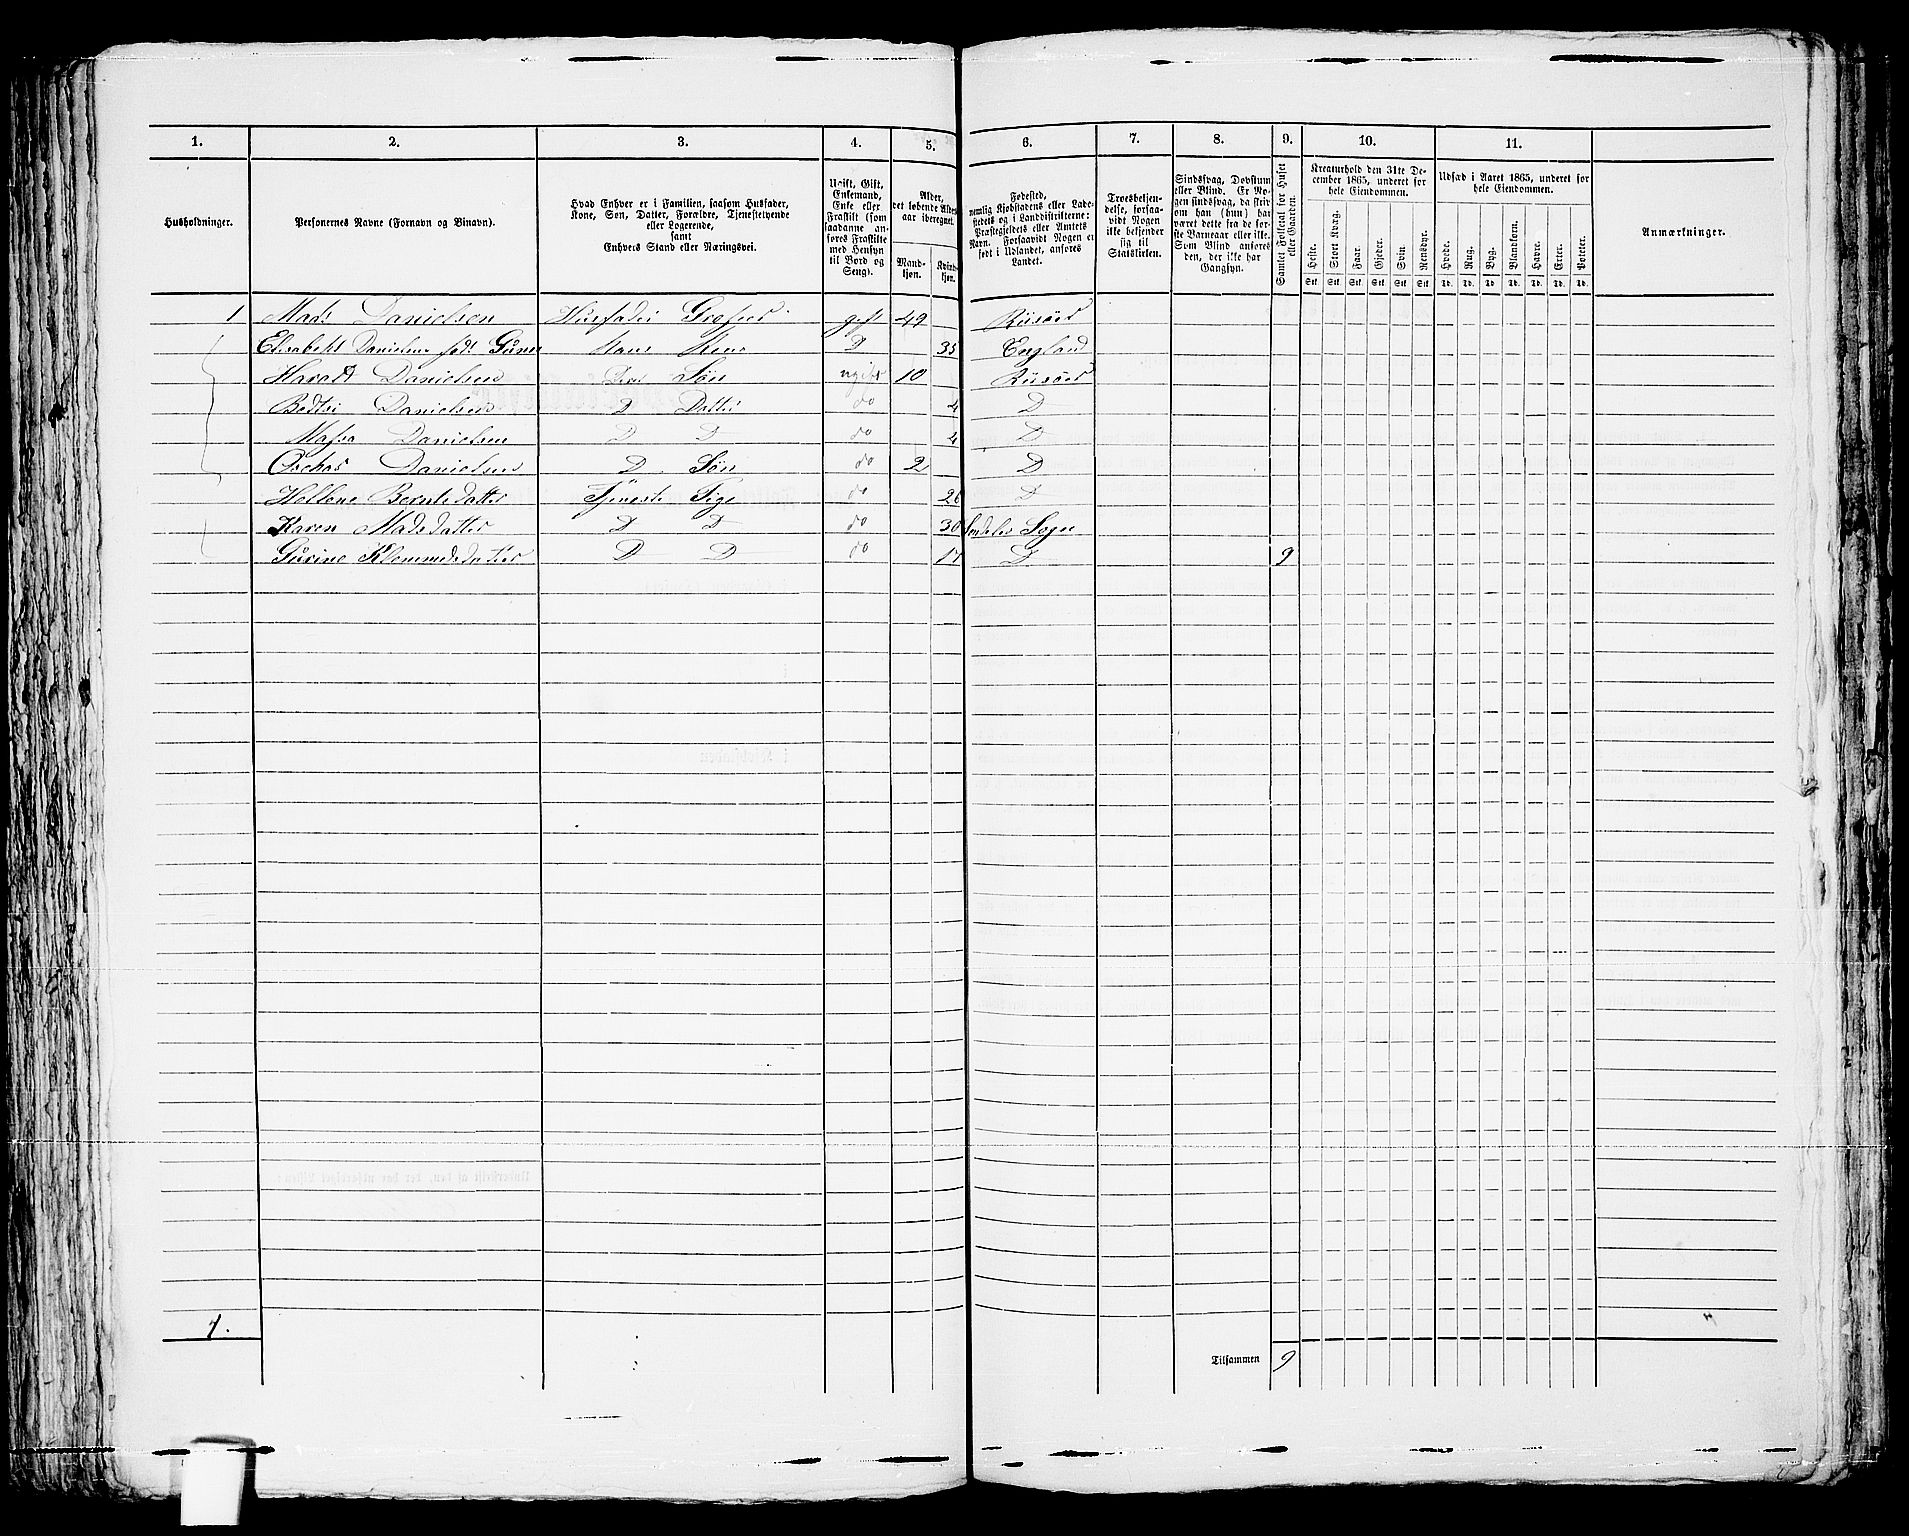 1. 2. 3. 4. 5. 6. 7. 8. 9. 10. 11.
Husholdninger.
Personernes Navne (Fornavn og Binavn).
Hvad Enhver er i Familien, saasom Husfader,
Kone, Søn, Datter, Forældre, Tjenestetyende
eller Logerende,
samt
Enhvers Stand eller Næringsvei.
Ugift, Gift,
Enkemand,
Enke eller
Fraskilt (som
saadanne an-
føres Fraskilte
med Hensyn
til Bord og
Seng).
Alder,
det løbende Alders-
aar iberegnet.
Mand-
kjøn.
Kvind-
kjøn.
Fødested,
nemlig Kjøbstadens eller Lade-
stedets og i Landdistrikterne:
Præstegjeldets eller Amtets
Navn. Forsaavidt Nogen er
født i Udlandet, anføres
Landet.
Troesbekjen-
delse, forsaa-
vidt Nogen
ikke bekjender
sig til
Statskirken.
Sindssvag, Døvstum
eller Blind. Er No-
gen sindssvag, da skriv
om han (hun) har
været dette fra de før-
ste Barneaar eller ikke.
Som Blind anføres
den, der ikke har
Gangsyn.
Samlet Folketal for Huset
eller Gaarden.
Kreaturhold den 31te De-
cember 1865, underet for
hele Eiendommen.
Heste. Stort Kvæg. Faar. Gjeder. Svin. Rensdyr.
Stk Stk Stk Stk Stk Stk
Udsæd i Aaret 1865, underet for
hele Eiendommen.
Hvede. Rug. Byg. Blandkorn. Havre. Erter. Poteter.
Td. Td. Td. Td. Td. Td. Td.
Anmærkninger.
1 Mads Danielsen Husfader gift 49 Riisöer
Elisabeth Danielsen hans Kone D 35 England
Harald Danielsen Søn ugift 10 Riisöer
Danielsen D Datter do 4 D
Danielsen D D do 4 D
Danielsen D Søn do 2 D
Hellene Berntsdatter Tjeneste Pige do 26 D
Karen Madsdatter D D do 30 Søndeløv Sogn
Gurine Klemmedsdatter D D do 17 D 9
1.
Tilsammen 9